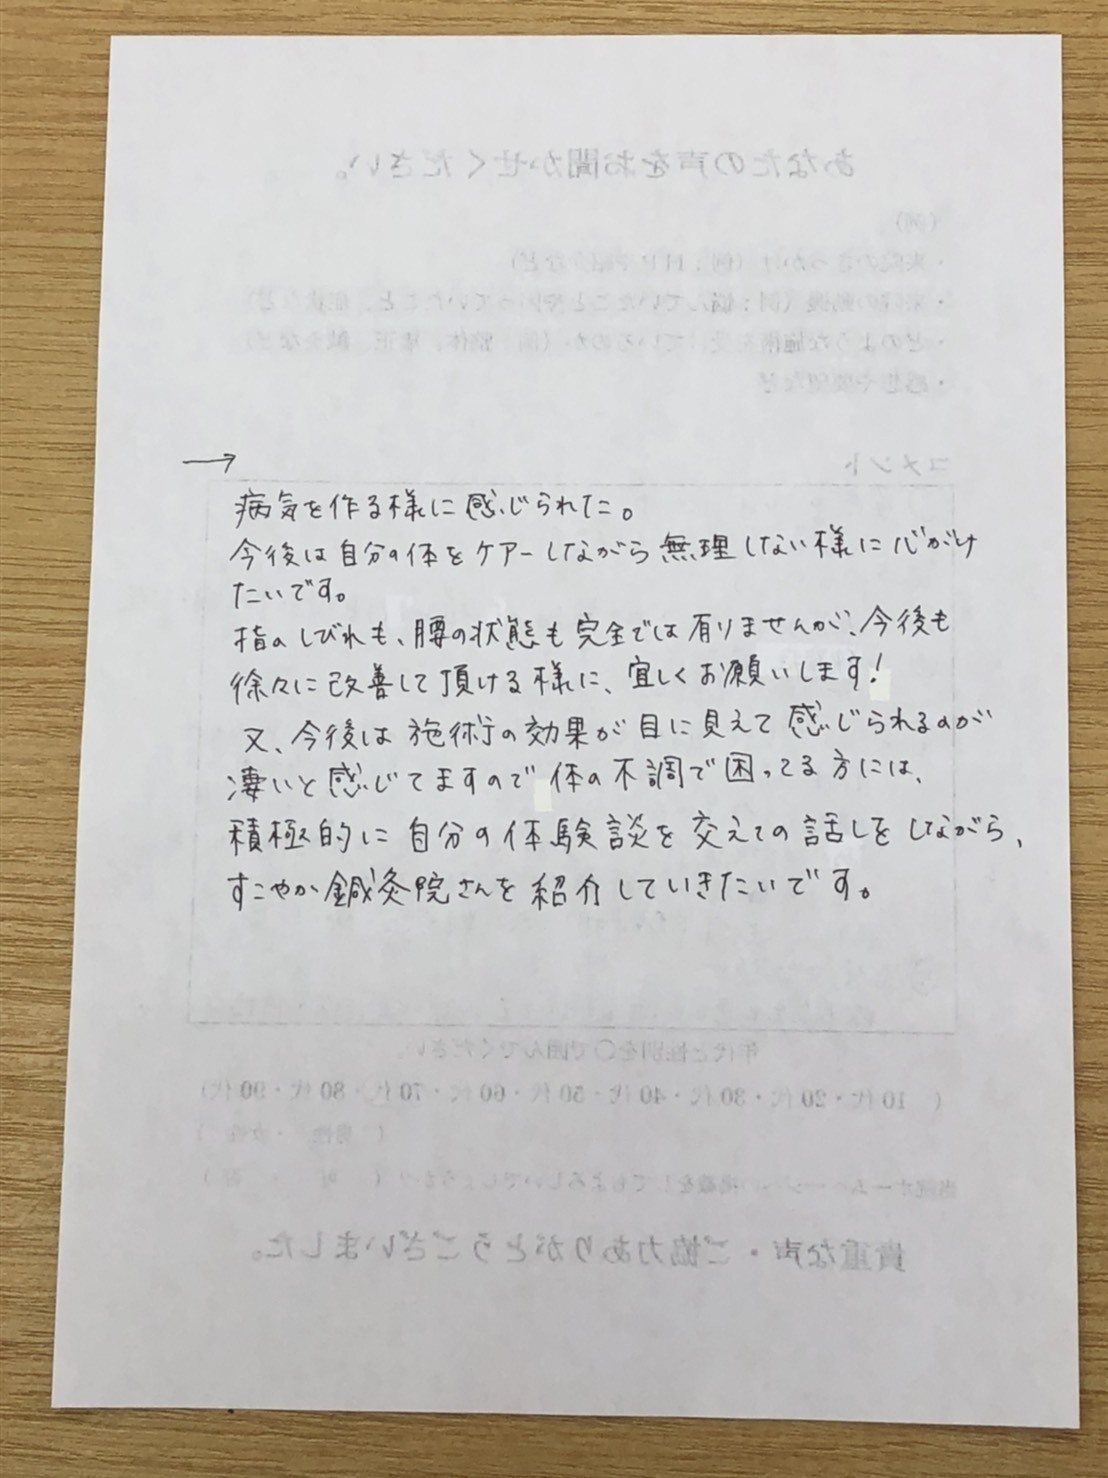 →
病気を作る様に感じられた。
今後は自分の体をケアーしながら無理しない様に心がけ
たいです。
指のしびれも、腰の状態も完全では有りませんが、今後も
徐々に改善して頂ける様に、宜しくお願いします!
又、今後は施術の効果が目に見えて感じられるのが
凄いと感じてますので体の不調で困ってる方には、
積極的に自分の体験談を交えての話しをしながら、
すこやか鍼灸院さんを紹介していきたいです。